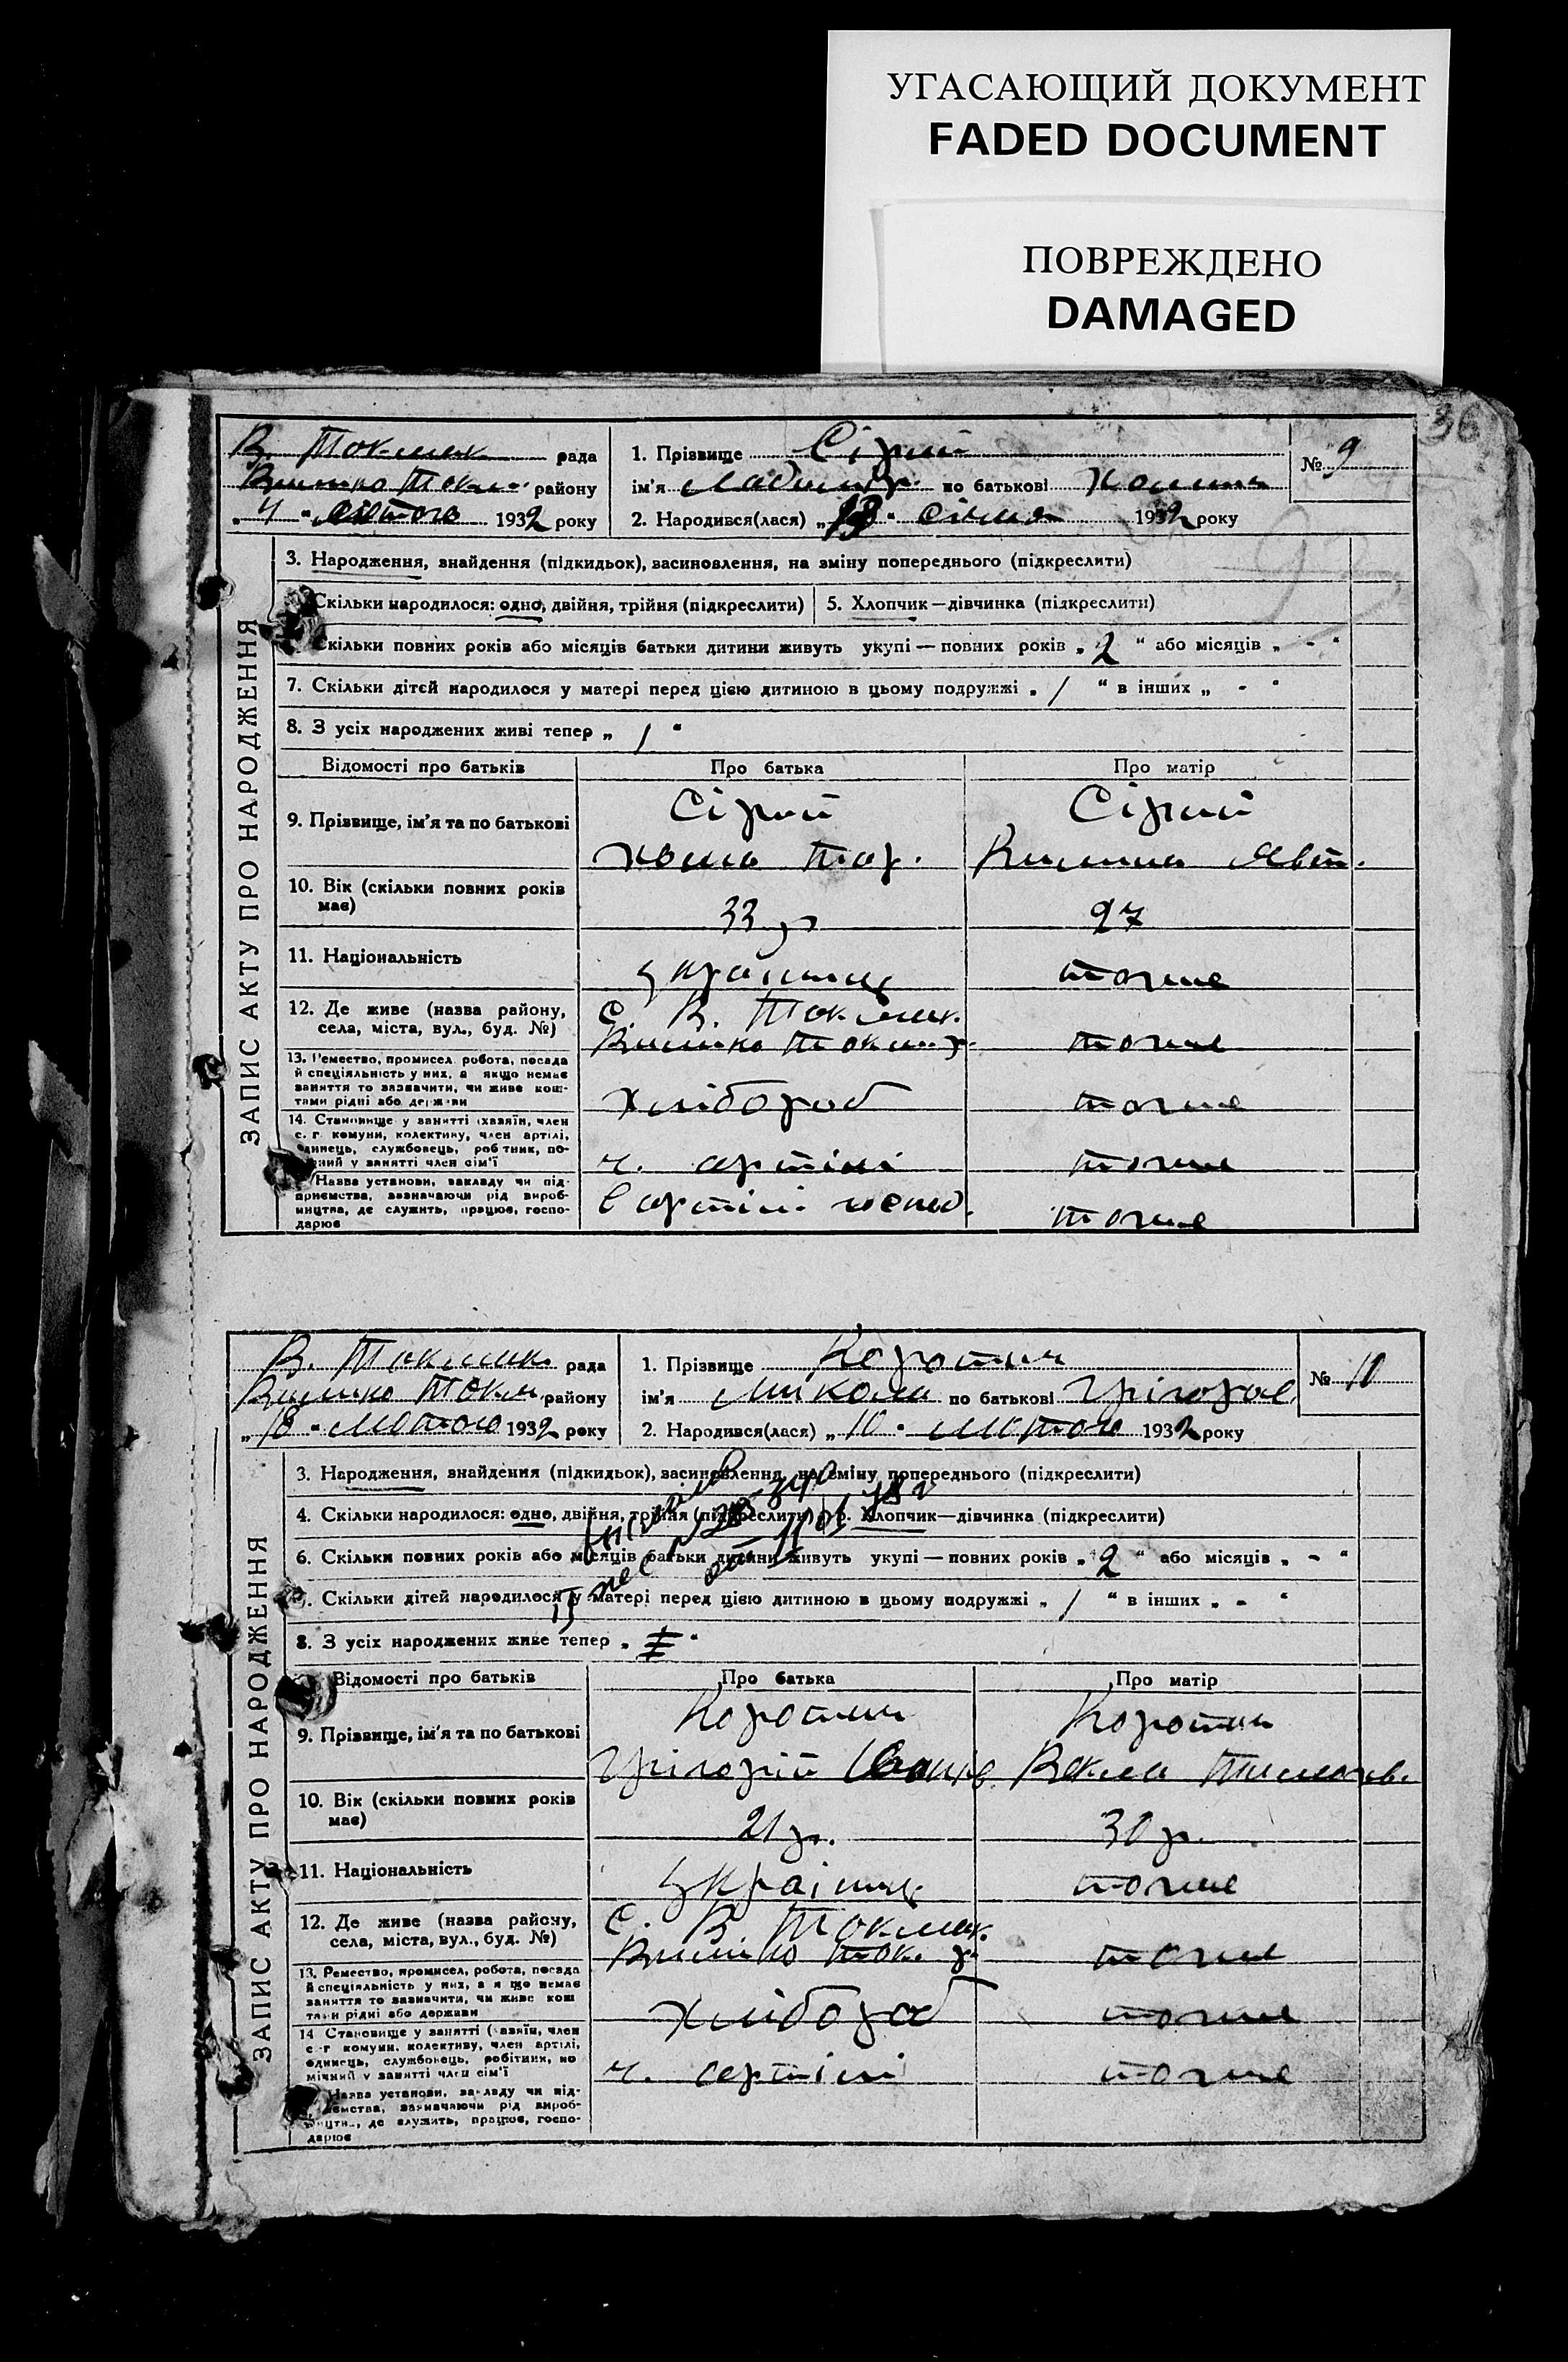 УГАСАЮЩИЙ ДОКУМЕНТ
FADED DOCUMENT
ПОВРЕЖДЕНО
DAMAGED
36
В. Токмак рада
Токм. району
„4“ лютого 1932 року
1. Прізвище Сірий
ім'я по батькові
2. Народився(лася) 1932 року
№ 9
ЗАПИС АКТУ ПРО НАРОДЖЕННЯ
3. Народження, знайдення (підкидьок), засиновлення, на зміну попереднього (підкреслити)
Скільки народилося: одно, двійня, трійня (підкреслити)
5. Хлопчик—дівчинка (підкреслити)
Скільки повних років або місяців батьки дитини живуть укупі — повних років „2“ або місяців „-“
7. Скільки дітей народилося у матері перед цією дитиною в цьому подружжі „1“ в інших „-“
8. З усіх народжених живі тепер „1“
Відомості про батьків
Про батька
Про матір
9. Прізвище, ім'я та по батькові
Сірий
Сірий
10. Вік (скільки повних років має)
33 р
27
11. Національність
українц
тоже
12. Де живе (назва району, села, міста, вул., буд. №)
с. В. Токмак.
Токм. р.
тоже
13. Ремество, промисел, робота, посада
й спеціяльність у них, а якщо немає
заняття то зазначити, чи живе кош-
тами рідні або держави
хлібороб
тоже
14. Становище у занятті (хазяїн, член
с.-г. комуни, колективу, член артілі,
одинець, службовець, робітник, по-
у занятті член сім'ї
ч. артілі
тоже
Назва установи, закладу чи під-
приємства, зазначаючи рід вироб-
ництва, де служить, працює, госпо-
дарює
в артілі
тоже
В. Токмак рада
Токм району
„10“ лютого 1932 року
1. Прізвище Коротич
ім'я Микола по батькові Грігоров
2. Народився(лася) „10“ лютого 1932 року
№ 10
ЗАПИС АКТУ ПРО НАРОДЖЕННЯ
3. Народження, знайдення (підкидьок), засиновлення, на зміну попереднього (підкреслити)
4. Скільки народилося: одно, двійня, трійня (підкреслити)
5. Хлопчик—дівчинка (підкреслити)
6. Скільки повних років або місяців батьки дитини живуть укупі — повних років „2“ або місяців „-“
7. Скільки дітей народилося у матері перед цією дитиною в цьому подружжі „1“ в інших „-“
8. З усіх народжених живе тепер
Відомості про батьків
Про батька
Про матір
9. Прізвище, ім'я та по батькові
Коротич
Коротич
Грігорій
Векла
10. Вік (скільки повних років має)
21 р.
30 р.
11. Національність
українц
тоже
12. Де живе (назва району, села, міста, вул., буд. №)
с. В Токмак.
Ток. р.
тоже
13. Ремество, промисел, робота, посада
й спеціяльність у них, а якщо немає
заняття то зазначити, чи живе кош
тами рідні або держави
хлібороб
тоже
14 Становище у занятті (хазяїн, член
с.-г комуни, колективу, член артілі,
одинець, службовець, робітник, по
мічний у занятті член сім'ї
ч. артілі
тоже
Назва установи, закладу чи під-
приємства, зазначаючи рід вироб-
ництва, де служить, працює, госпо-
дарює